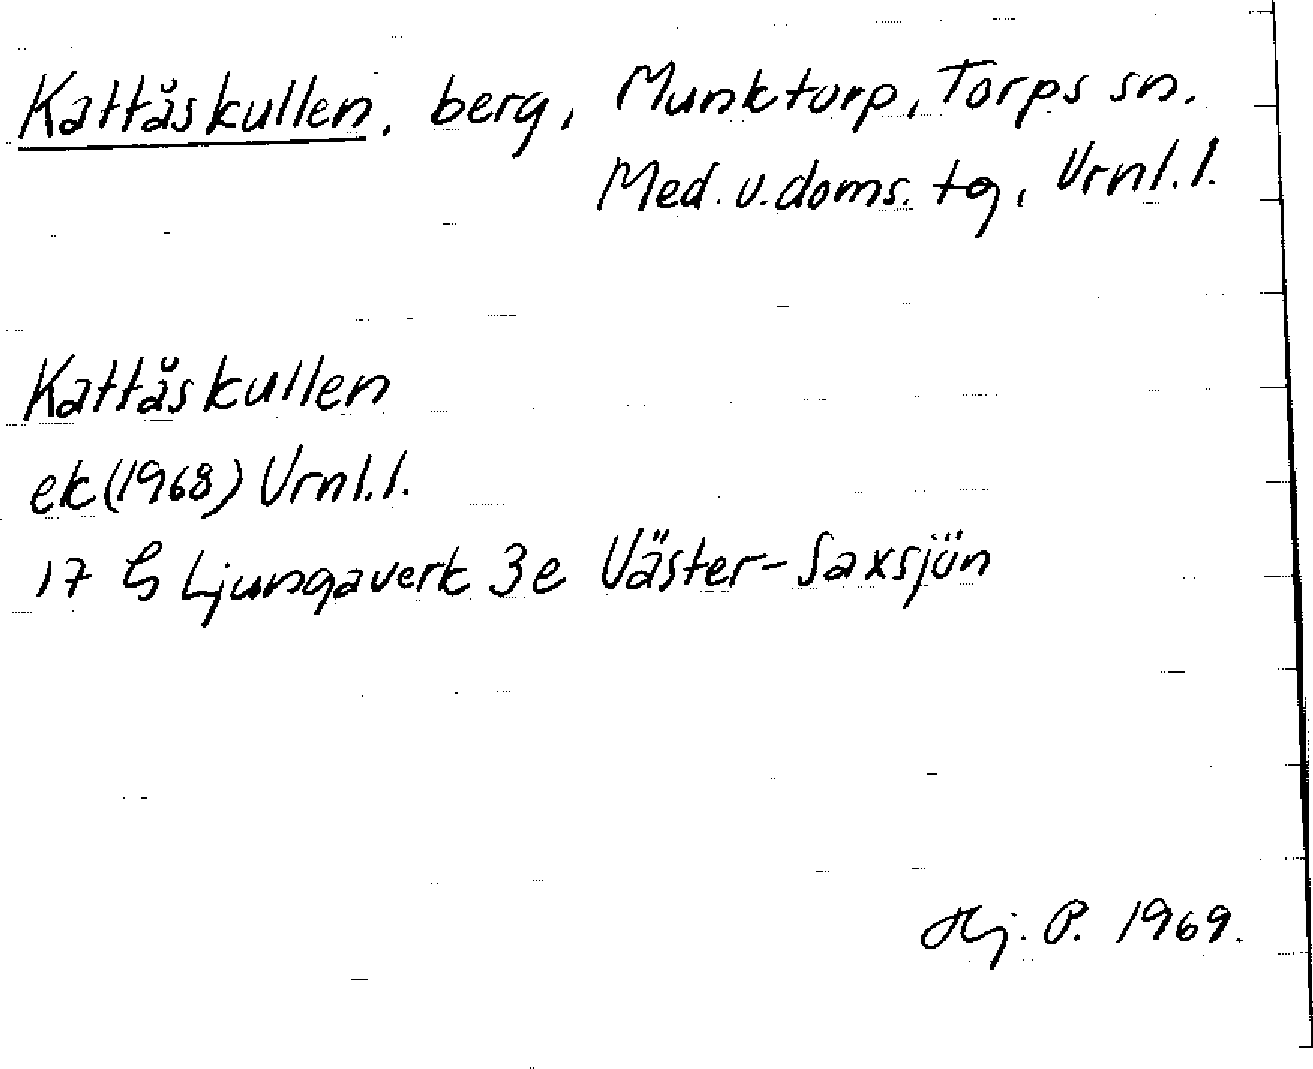 Kattåskullen, berg, Munktorp, Torps sn.
Med. v. doms. tg, Vrnl. l.
Kattåskullen
ek (1968) Vrnl. l.
17 G Ljungaverk 3e Väster-Saxsjön
Hj. P. 1969.